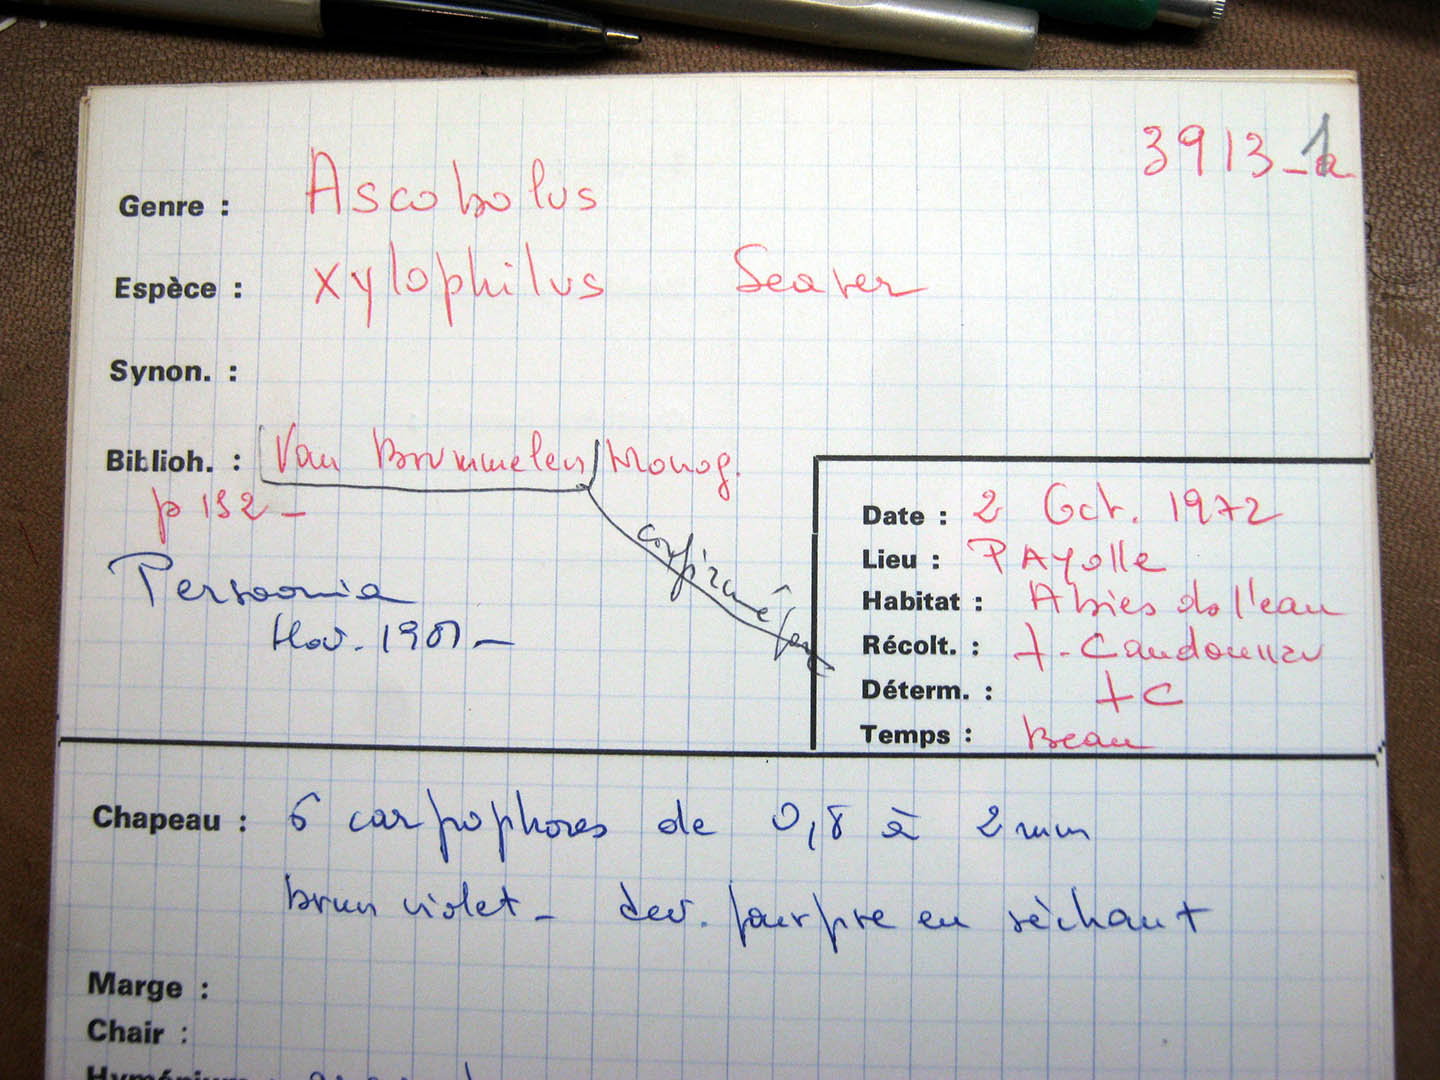 3913_1a
Genre : Ascobolus
Espèce : xylophilus Seaver
Synon. :
Biblioh. : Van Brummelen Monog.
p 192_
confirmé par
Persoonia
Nov. 1981_
Date : 2 Oct. 1972
Lieu : PAyolle
Habitat : Abies ds l'eau
Récolt. : F. Candoussau
Déterm. : FC
Temps : Beau
Chapeau : 6 carpophores de 0,8 à 2mm
brun violet_ dev. pourpre en séchant
Marge :
Chair :
Hyménium :